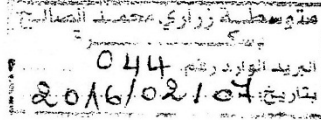 متوسطة زراري محمد الصالح
البريد الوارد رقم: 044
بتاريخ: 2016/02/07